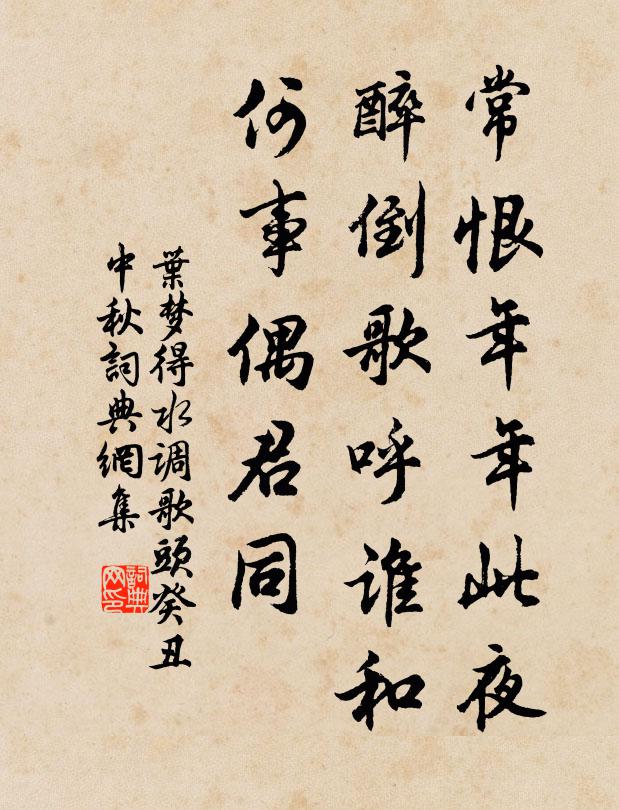 常恨年年此夜
醉倒歌呼谁和
何事偶君同
葉梦得水调歌頭癸丑
中秋詞典網集
詞典网印